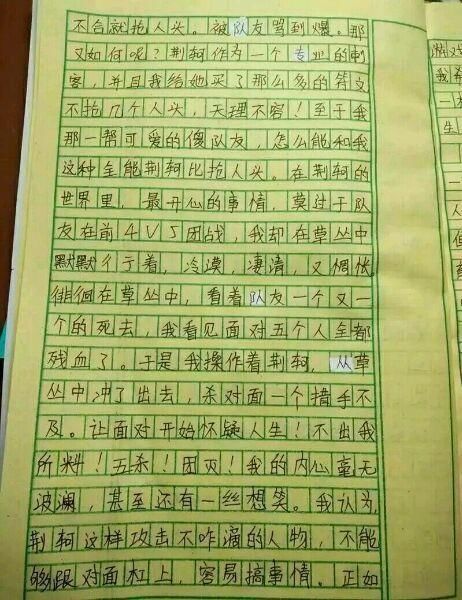 不合就抢人头。被队友骂到爆。那
又如何呢？荆轲作为一个专业的刺
客，并且我给她买了那么多的符文
不抢几个人头，天理不容！至于我
那一帮可爱的傻队友，怎么能和我
这种全能荆轲比抢人头。在荆轲的
世界里，最开心的事情，莫过于队
友在前4V5团战，我却在草丛中
默默彳亍着，冷漠，凄清，又惆怅
徘徊在草丛中，看着队友一个又一
个的死去，我看见面对五个人全都
残血了。于是我操作着荆轲，从草
丛中冲了出去，杀对面一个措手不
及。让面对开始怀疑人生！不出我
所料！五杀！团灭！我的内心毫无
波澜，甚至还有一丝想笑。我认为，
荆轲这样攻击不咋滴的人物，不能
够跟对面杠上，容易搞事情。正如
我希
一
生